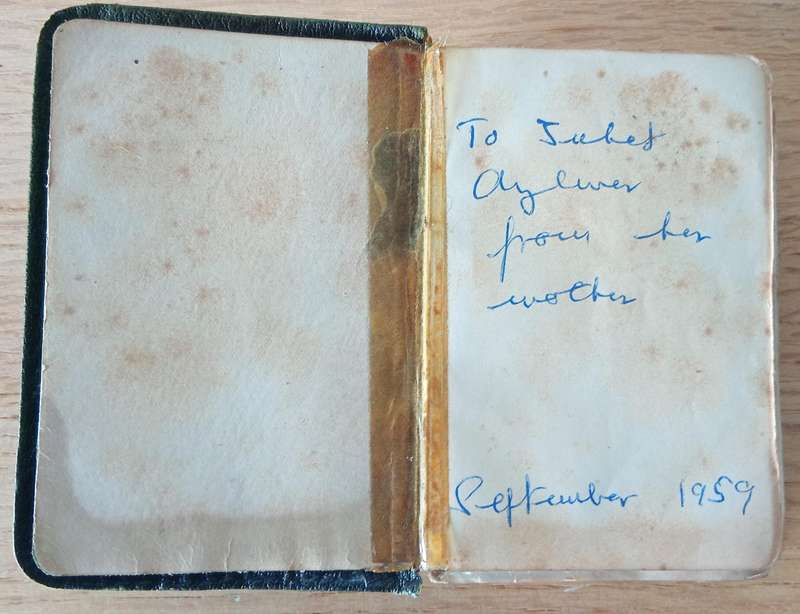 To Juliet
Aylmer
from her
mother
September 1959